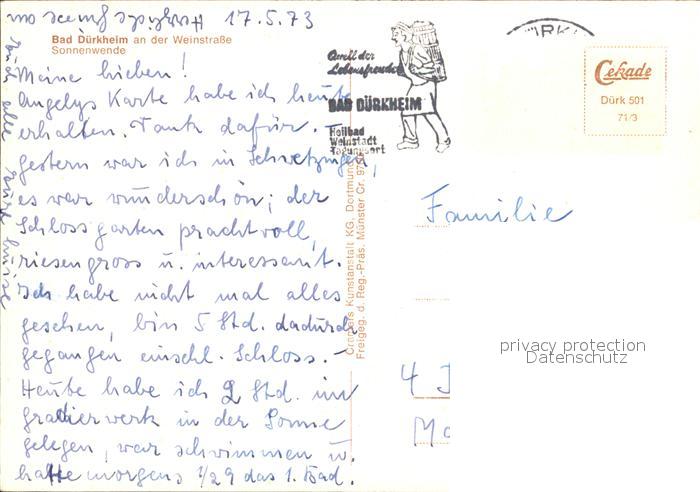 17.5.73
Bad Dürkheim an der Weinstraße
Sonnenwende
Meine Lieben!
Angelys Karte habe ich heute
erhalten. Dank dafür. –
Gestern war ich in Schwetzingen,
es war wunderschön; der
Schlossgarten prachtvoll,
riesengross u. interessant.
Ich habe nicht mal alles
gesehen, bin 5 Std. dadurch
gegangen einschl. Schloss. –
Heute habe ich 2 Std. im
Gradierwerk in der Sonne
gelegen, war schwimmen u.
hatte morgens 1/2 9 das 1. Bad.
Quell der
Lebensfreude
BAD DÜRKHEIM
Heilbad
Weinstadt
Tagungsort
Cekade
Dürk 501
71/3
Cramers Kunstanstalt KG, Dortmund
Freigeg. d. Reg.-Präs. Münster Cr.
Familie
4
privacy protection
Datenschutz